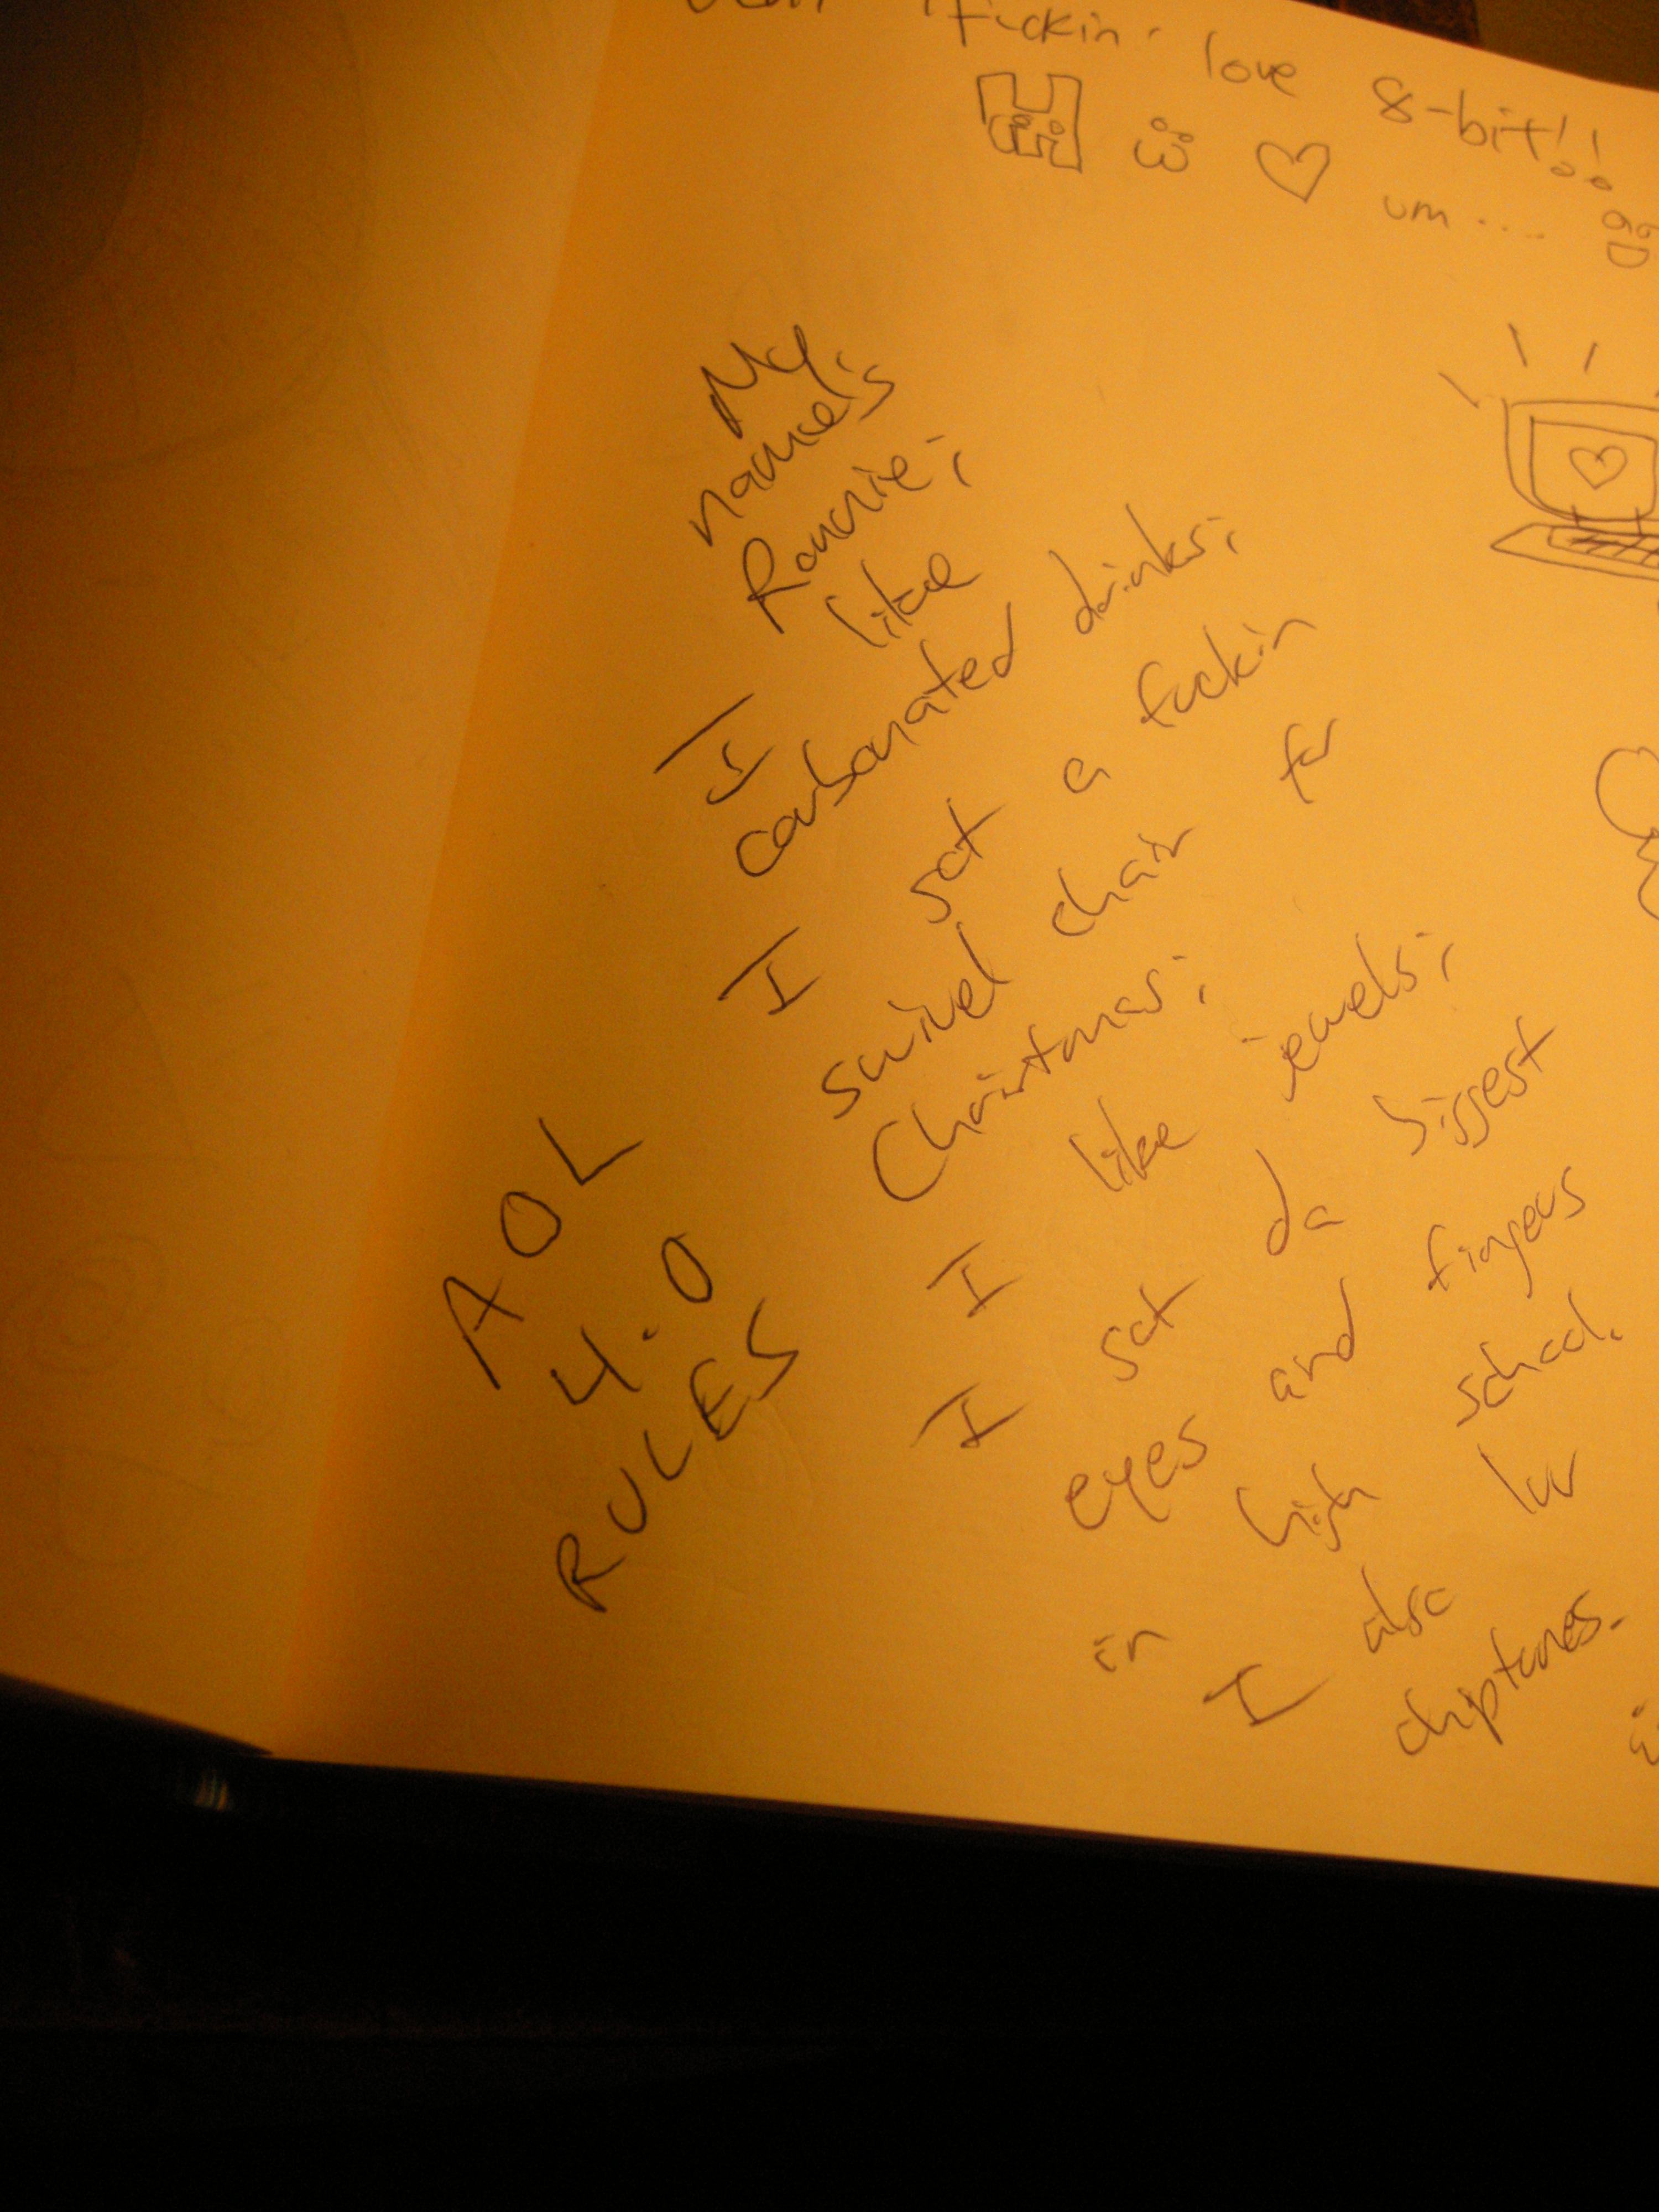 fuckin' love 8-bit!!
um....
My
name's
Ronnie;
I like
carbonated drinks;
I got a fuckin
swivel chair for
Christmas;
I like jewels;
I got da biggest
eyes and fingers
in high school.
I also luv
chiptunes.
AOL
4.0
RULES